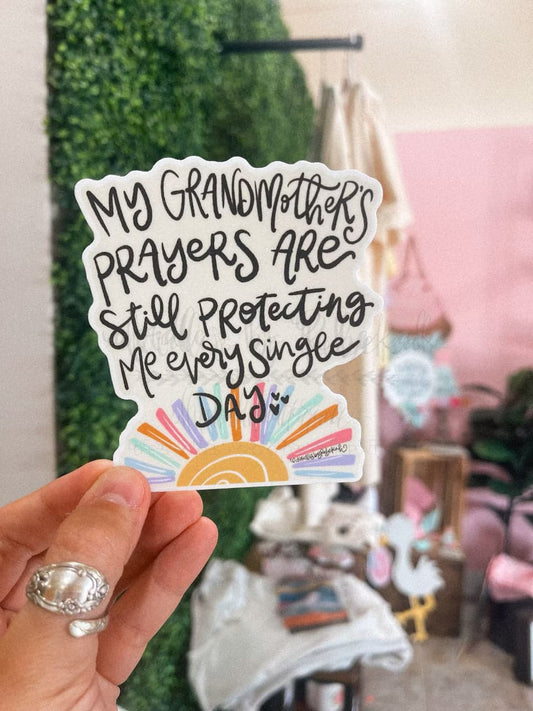 MY GRANDMOTHER'S
PRAYERS ARE
Still PROtECTING
Me everySingle
DAY